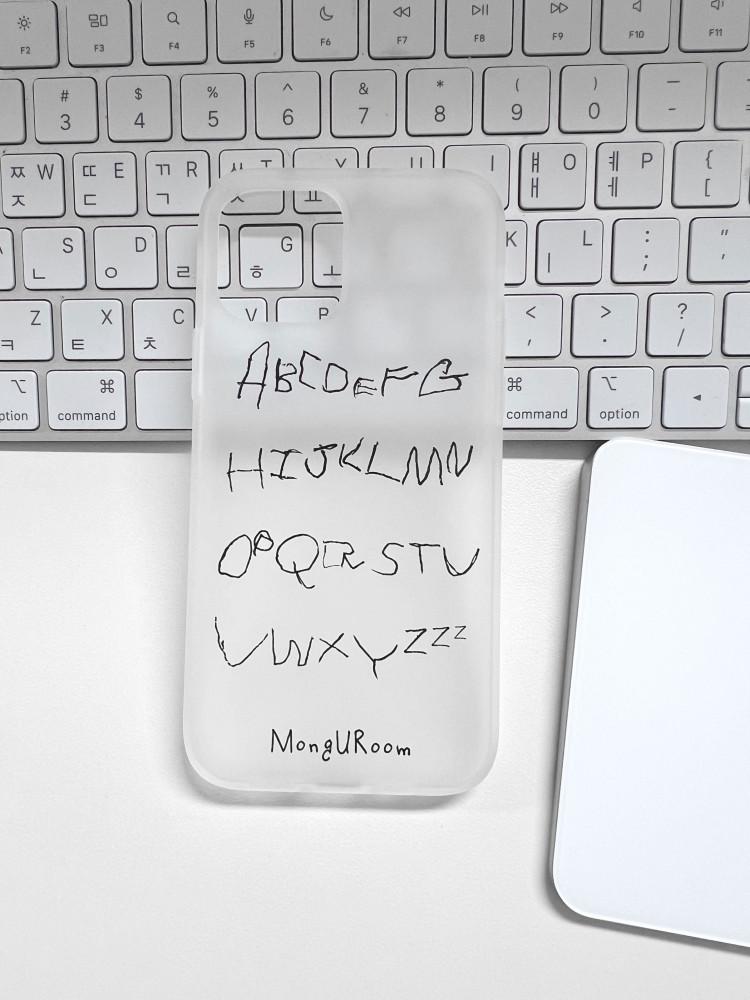 F2 F3 F4 F5 F6 F7 F8 F9 F10 F11
# 3 $ 4 % 5 ^ 6 & 7 * 8 ( 9 ) 0 — -
ㅉ W ㅈ ㄸ E ㄷ ㄲ R ㄱ ㅆ T ㅅ Y ㅛ U I ㅒ O ㅐ ㅖ P ㅔ { [
S ㄴ D ㅇ ㄹ G ㅎ ㅗ K L ㅣ : ; " '
Z ㅋ X ㅌ C ㅊ V < , > . ? /
ption ⌥ command ⌘ ⌘ command ⌥ option ◂
ABCDEFG
HIJKLMN
OPQRSTU
VWXYZZZ
MongURoom